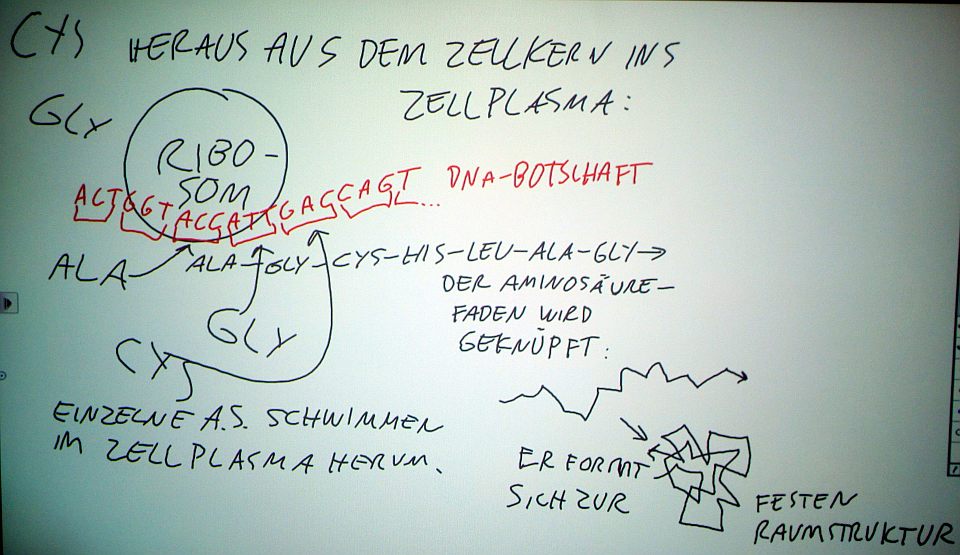 CYS HERAUS AUS DEM ZELLKERN INS
ZELLPLASMA:
GLY
RIBO-
SOM
ACTGGTACGATTGAGCAGT... DNA-BOTSCHAFT
ALA
ALA-GLY-CYS-HIS-LEU-ALA-GLY→
DER AMINOSÄURE-
FADEN WIRD
GEKNÜPFT:
GLY
CYS
EINZELNE A.S. SCHWIMMEN
IM ZELLPLASMA HERUM.
ER FORMT
SICH ZUR
FESTEN
RAUMSTRUKTUR